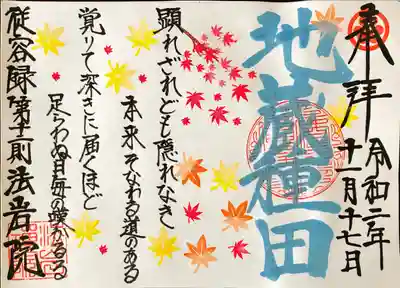 奉拝
令和二年
十一月十七日
地蔵種田
顕れざれども隠れなき
本来そなわる道のある
覚りて深きに届くほど
足らわぬ自毎の
従容録第十二則法岩院